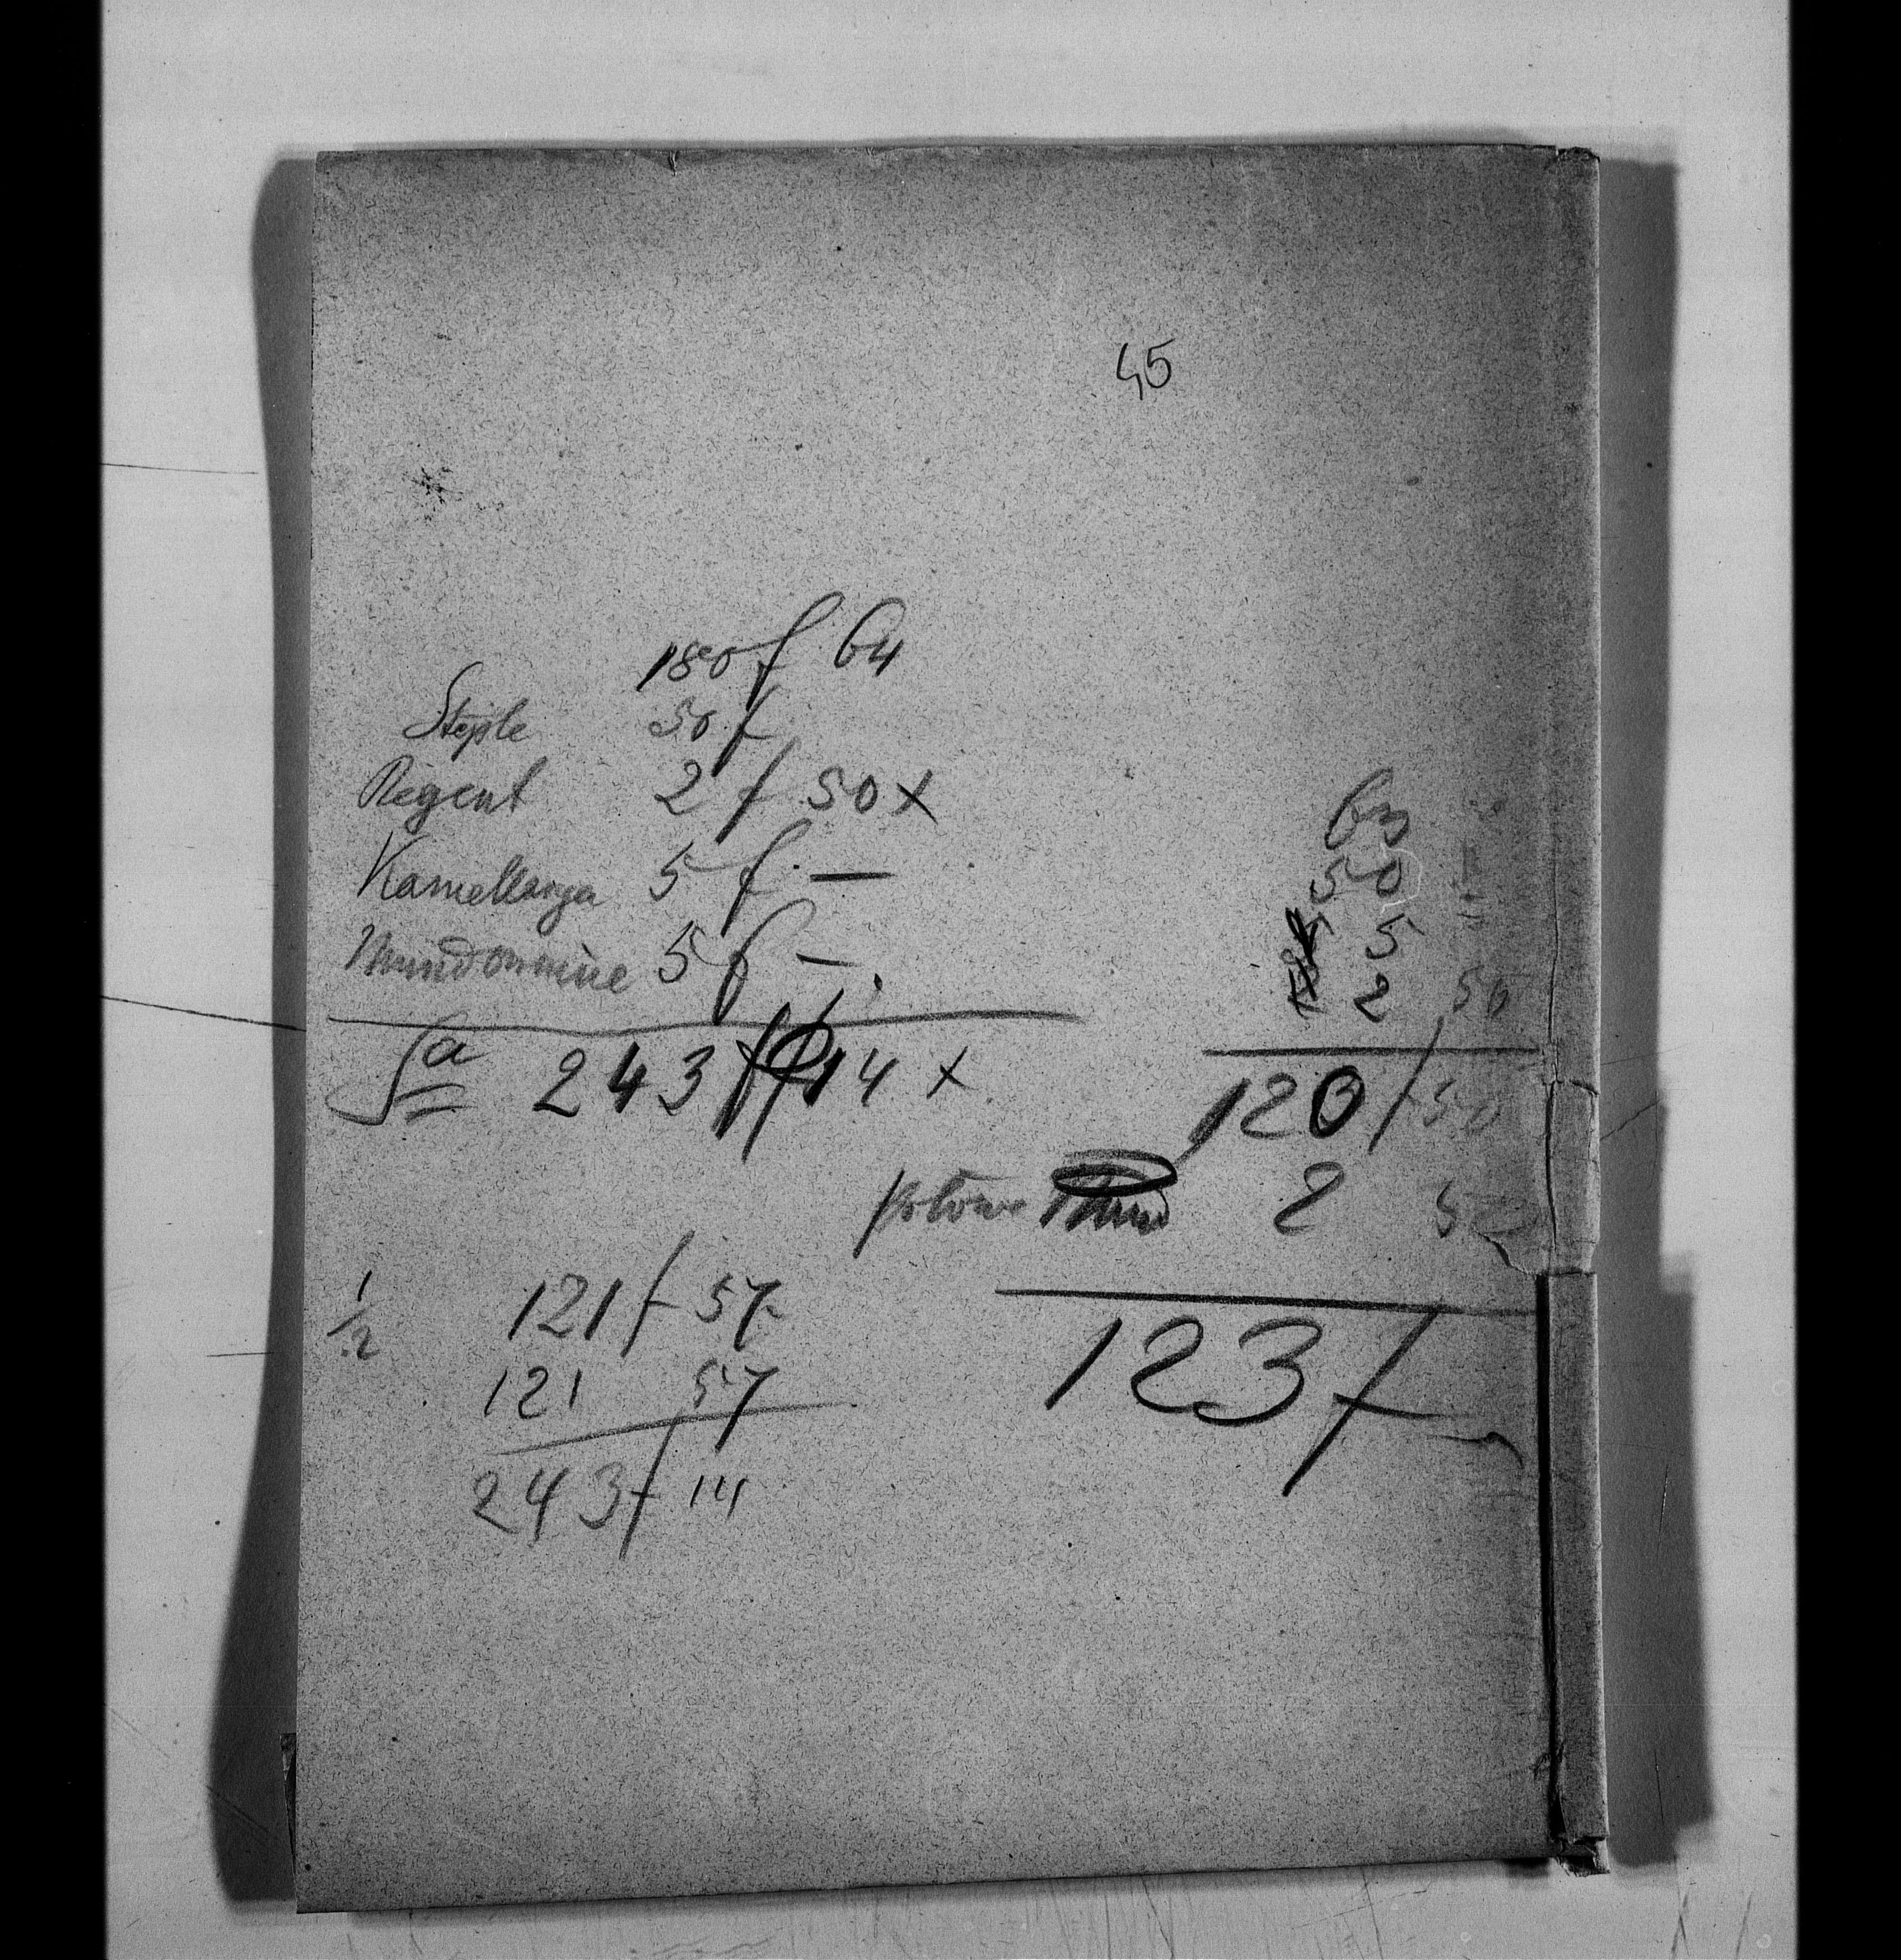 45
180 f 64
Steple 50 f
Regent 2 f 50 x
Kamellarya 5 f —
5 f —
Sa 243 f 14 x
63
50
5
2 50
120 f 50
połowa 2 50
123 f
1/2 121 f 57
121 57
243 f 14